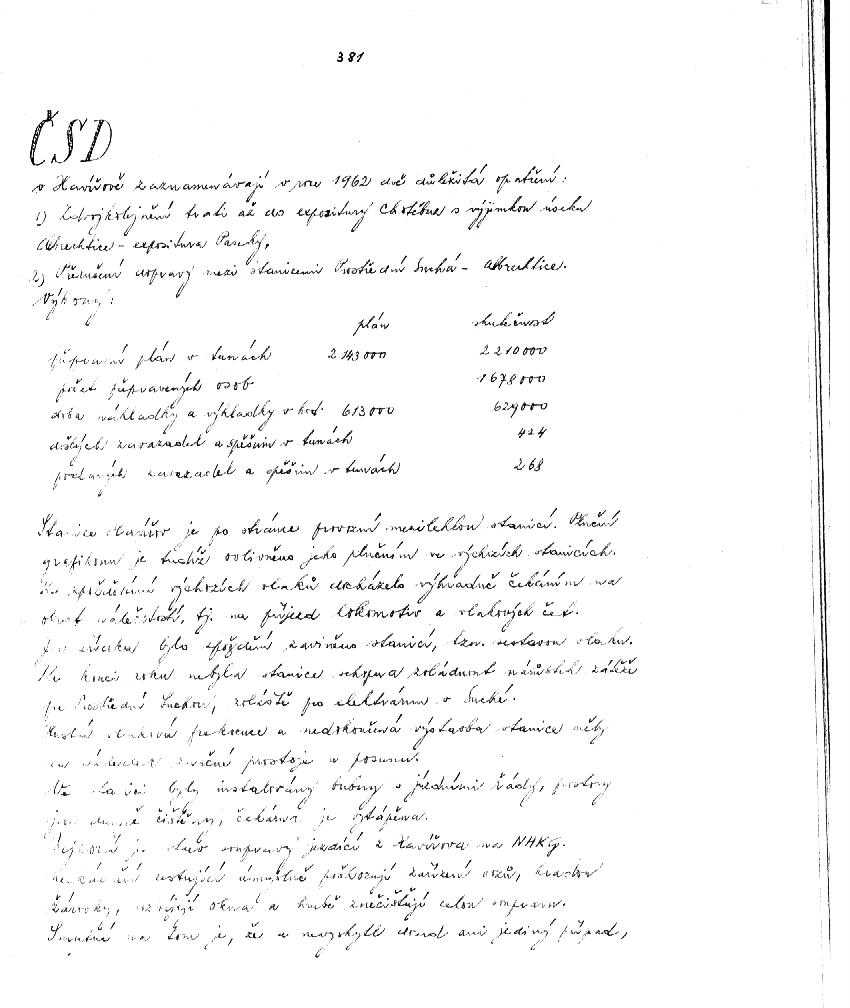 381
ČSD
v Havířově zaznamenávají v roce 1962 dvě důležitá opatření:
1) Zdvojkolejnění trati až do expositury Chotěbuz s výjimkou úseku
Albrechtice - expositura Paseky,
2) Přerušení dopravy mezi stanicemi Prostřední Suchá - Albrechtice.
Výkony:
plán skutečnost
přepravní plán v tunách 2 143 000 2 210 000
počet přepravených osob 1 678 000
doba nákladky a výkladky v hod. 613 000 629 000
došlých zavazadel a spěšnin v tunách 424
podaných zavazadel a spěšnin v tunách 268
Stanice Havířov je po stránce provozní mezilehlou stanicí. Plnění
grafikonu je tudíž ovlivněno jeho plněním ve výchozích stanicích.
Ke zpožďování výchozích vlaků docházelo výhradně čekáním na
obrat náležitostí, tj. na příjezd lokomotiv a vlakových čet.
bylo zpoždění zaviněno stanicí, tzv. sestavou vlaku.
Ke konci roku nebyla stanice schopna zvládnout zátěže
pro Prostřední Suchou, zvláště pro elektrárnu v Suché.
Hustá vlaková frekvence a nedokončená výstavba stanice měly
za následek značné prostoje v posunu.
byly instalovány bubny s jízdními řády, prostory
jsou denně čištěny, čekárna je vytápěna.
je stav soupravy jezdící z Havířova na NHKG.
cestující úmyslně poškozují zařízení vozů, kradou
žárovky, okna a hrubě znečišťují celou soupravu.
Smutné na tom je, že se nevyskytl dosud ani jediný případ,